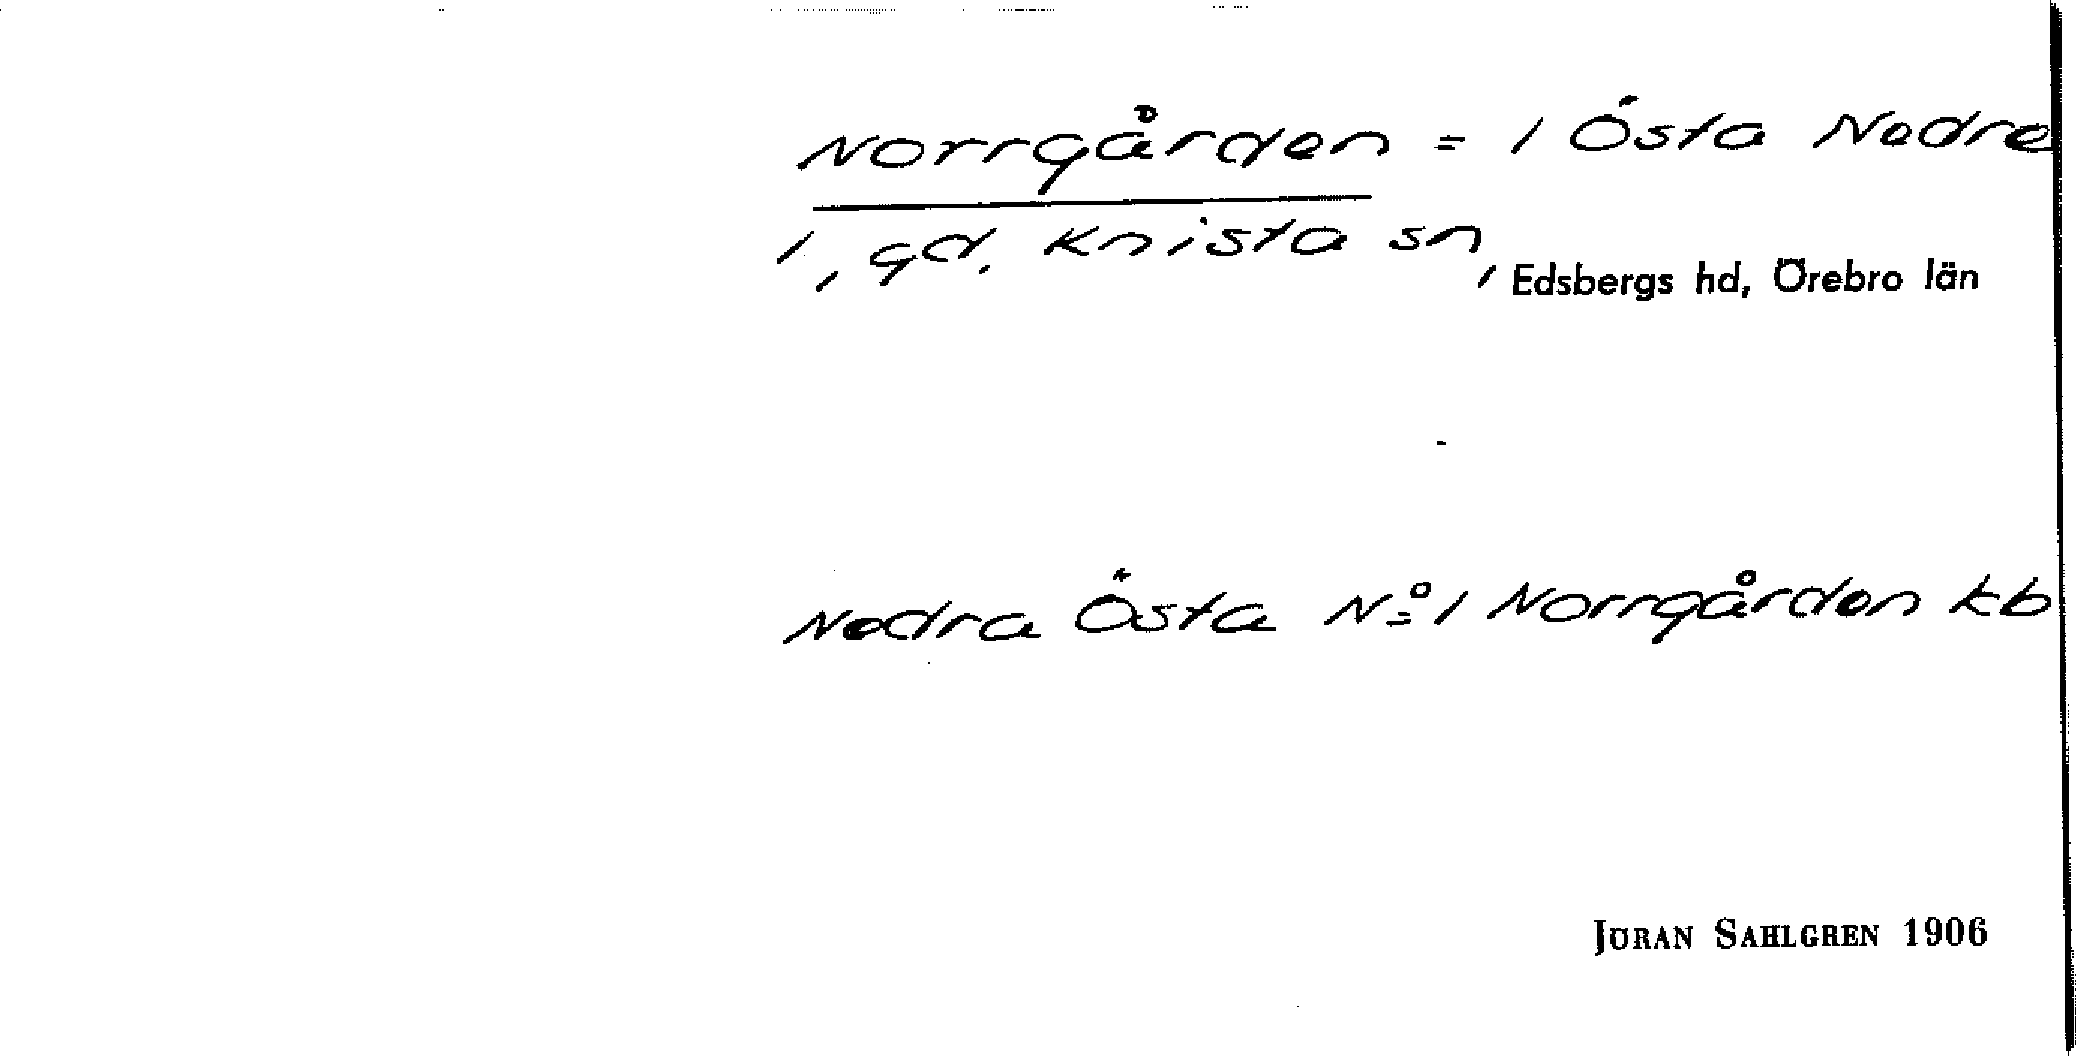 Norrgården = 1 Östa Nedre
1, gd. Knista sn, Edsbergs hd, Örebro län
Nedra Östa No 1 Norrgården kb
JÖRAN SAHLGREN 1906